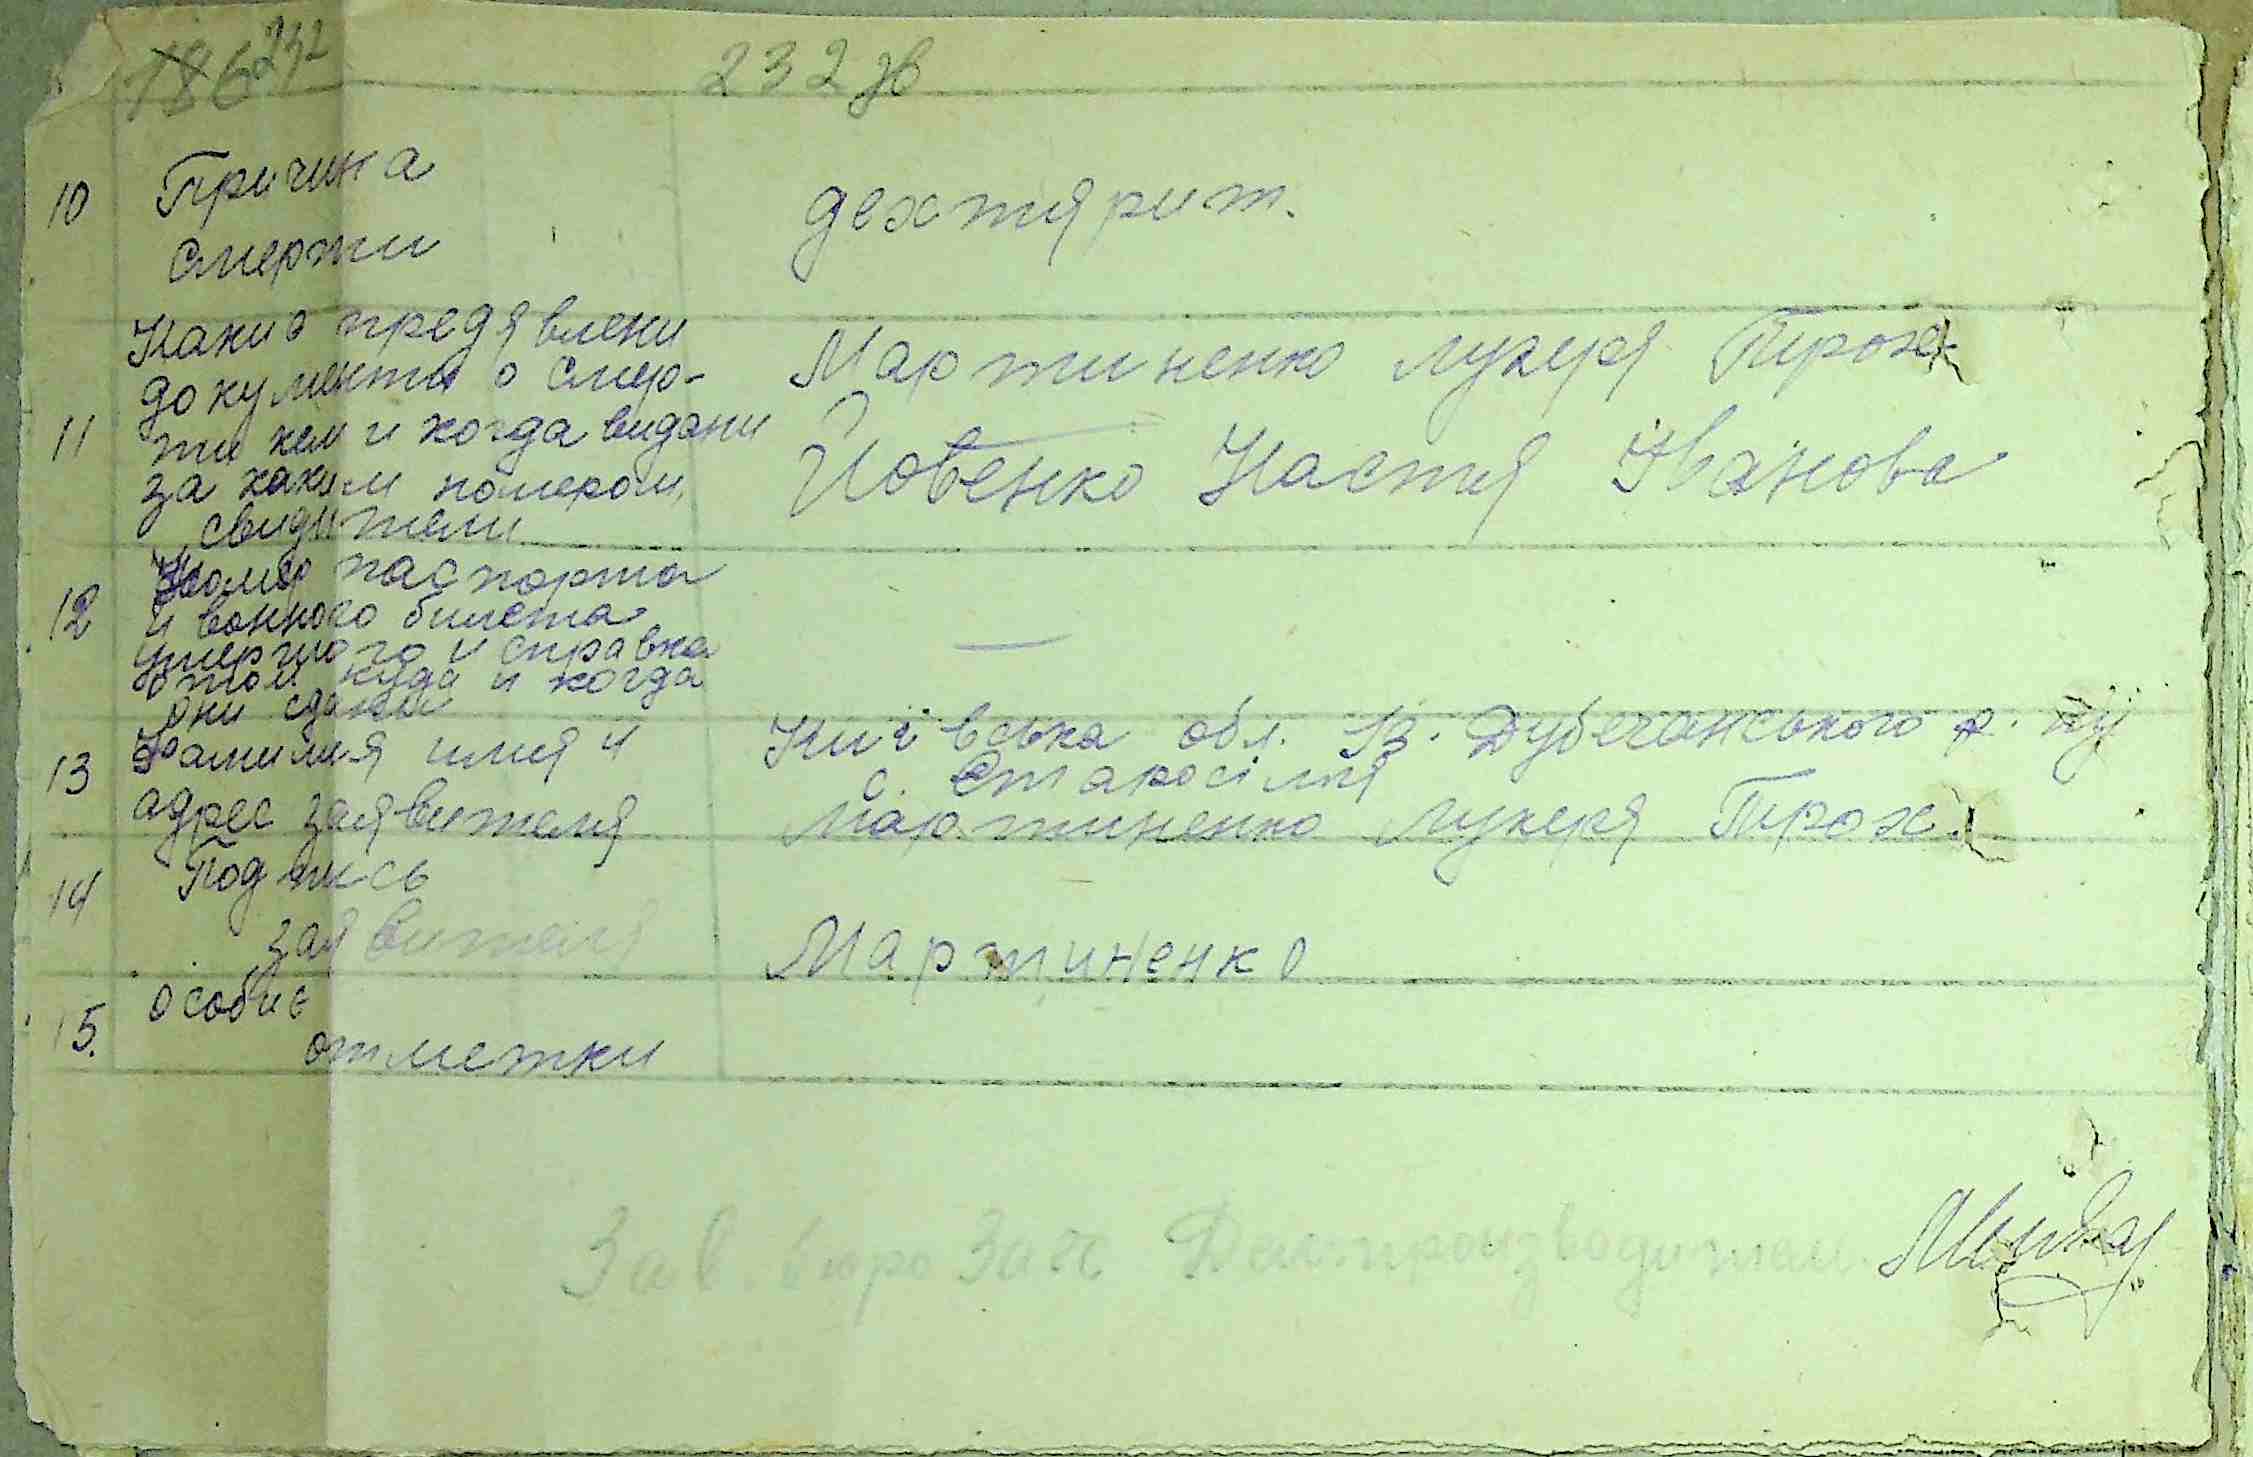 186 232
232 зв
10 Причина дехтярит.
смерти
Какие предявлени Мартиненко Лукеря Трох.
документы о смер-
11 ти кем и когда видани Йовенко Настя Іванова
за каким номером,
свидители
Номер паспорта
12 и воинного билета —
умершого и справка
о том куда и когда
они сдани
Київська обл. В. Дубечанського р.
13 Фамилия имя и с. Старосілля
адрес заявителя Мартиненко Лукеря Трох.
14 Подпись
заявителя Мартиненко
15. особие
отметки
Зав. бюро Загс Делопроизводитель